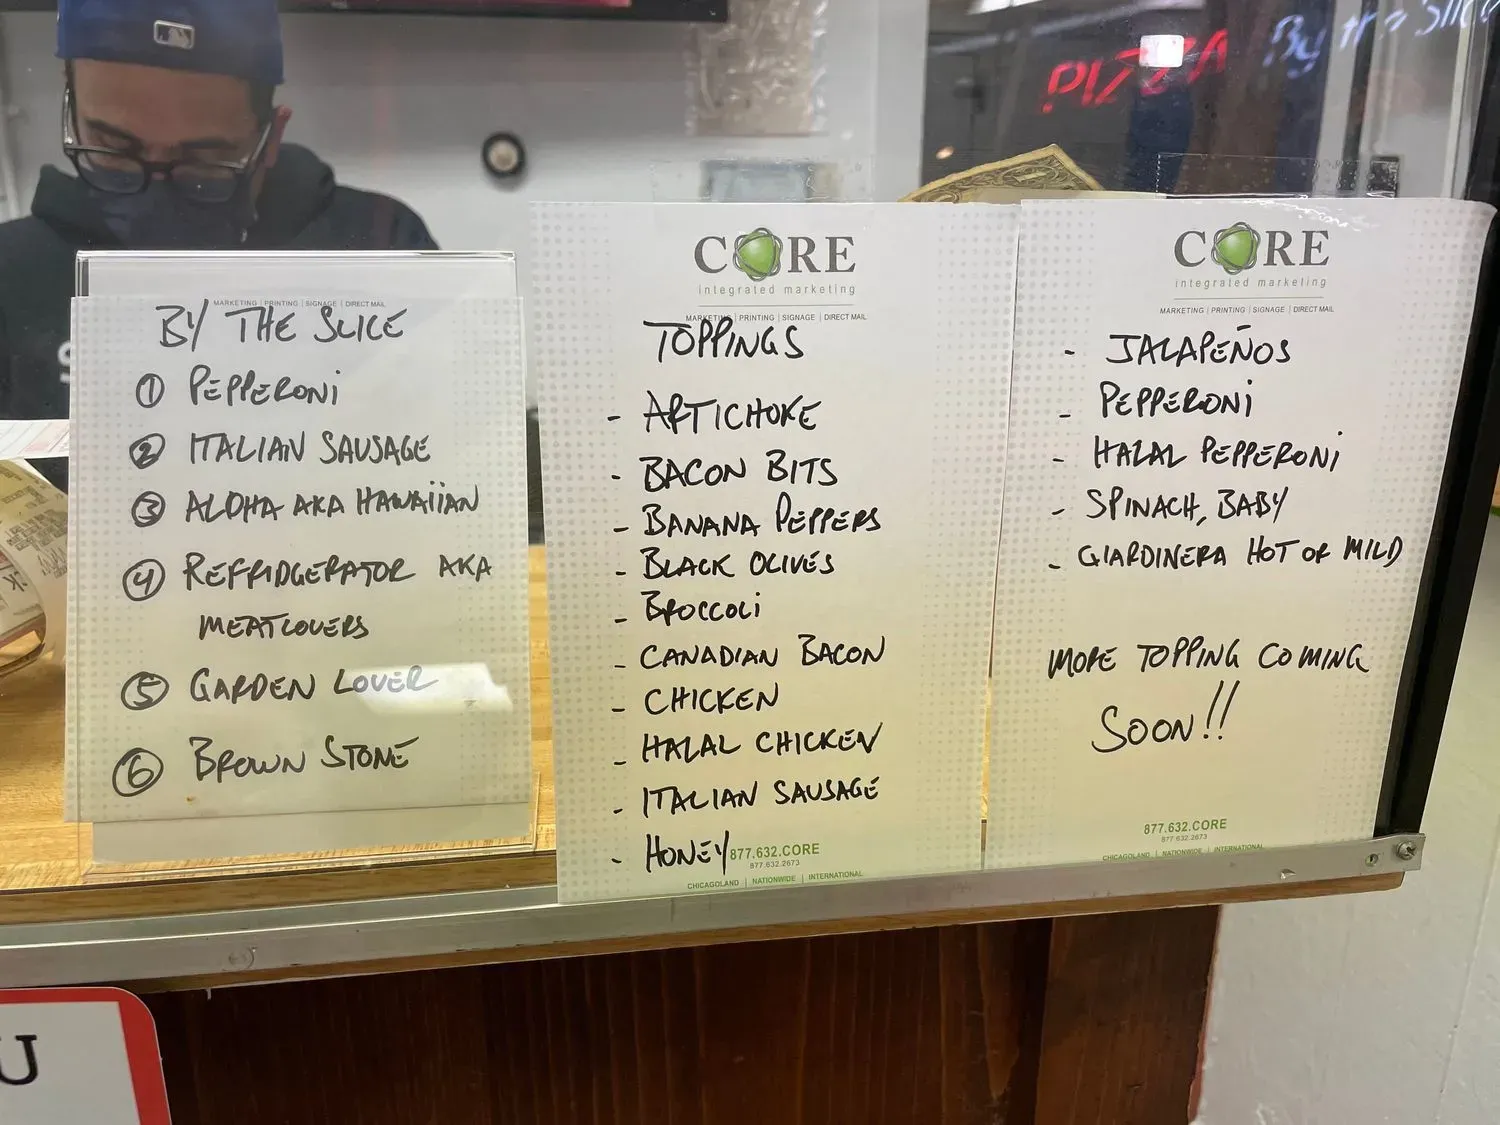 PIZZA By the Slice
MARKETING | PRINTING | SIGNAGE | DIRECT MAIL
BY THE SLICE
① PEPPERONi
② ITALIAN SAUSAGE
③ ALOHA AKA HAWAiiAN
④ REFRIDGERATOR AKA
MEATLOVERS
⑤ GARDEN LOVER
⑥ BROWN STONE
CORE
integrated marketing
MARKETING | PRINTING | SIGNAGE | DIRECT MAIL
TOPPINGS
- ARTICHOKE
- BACON BITS
- BANANA PEPPERS
- BLACK OLIVES
- BROCCOLi
- CANADIAN BACON
- CHICKEN
- HALAL CHICKEN
- ITALIAN SAUSAGE
- HONEY
877.632.CORE
877.632.2673
CHICAGOLAND | NATIONWIDE | INTERNATIONAL
CORE
integrated marketing
MARKETING | PRINTING | SIGNAGE | DIRECT MAIL
- JALAPEÑOS
- PEPPERONi
- HALAL PEPPERONi
- SPINACH, BABY
- GIARDINERA HOT OR MILD
MORE TOPPING COMING
SOON!!
877.632.CORE
877.632.2673
CHICAGOLAND | NATIONWIDE | INTERNATIONAL
U